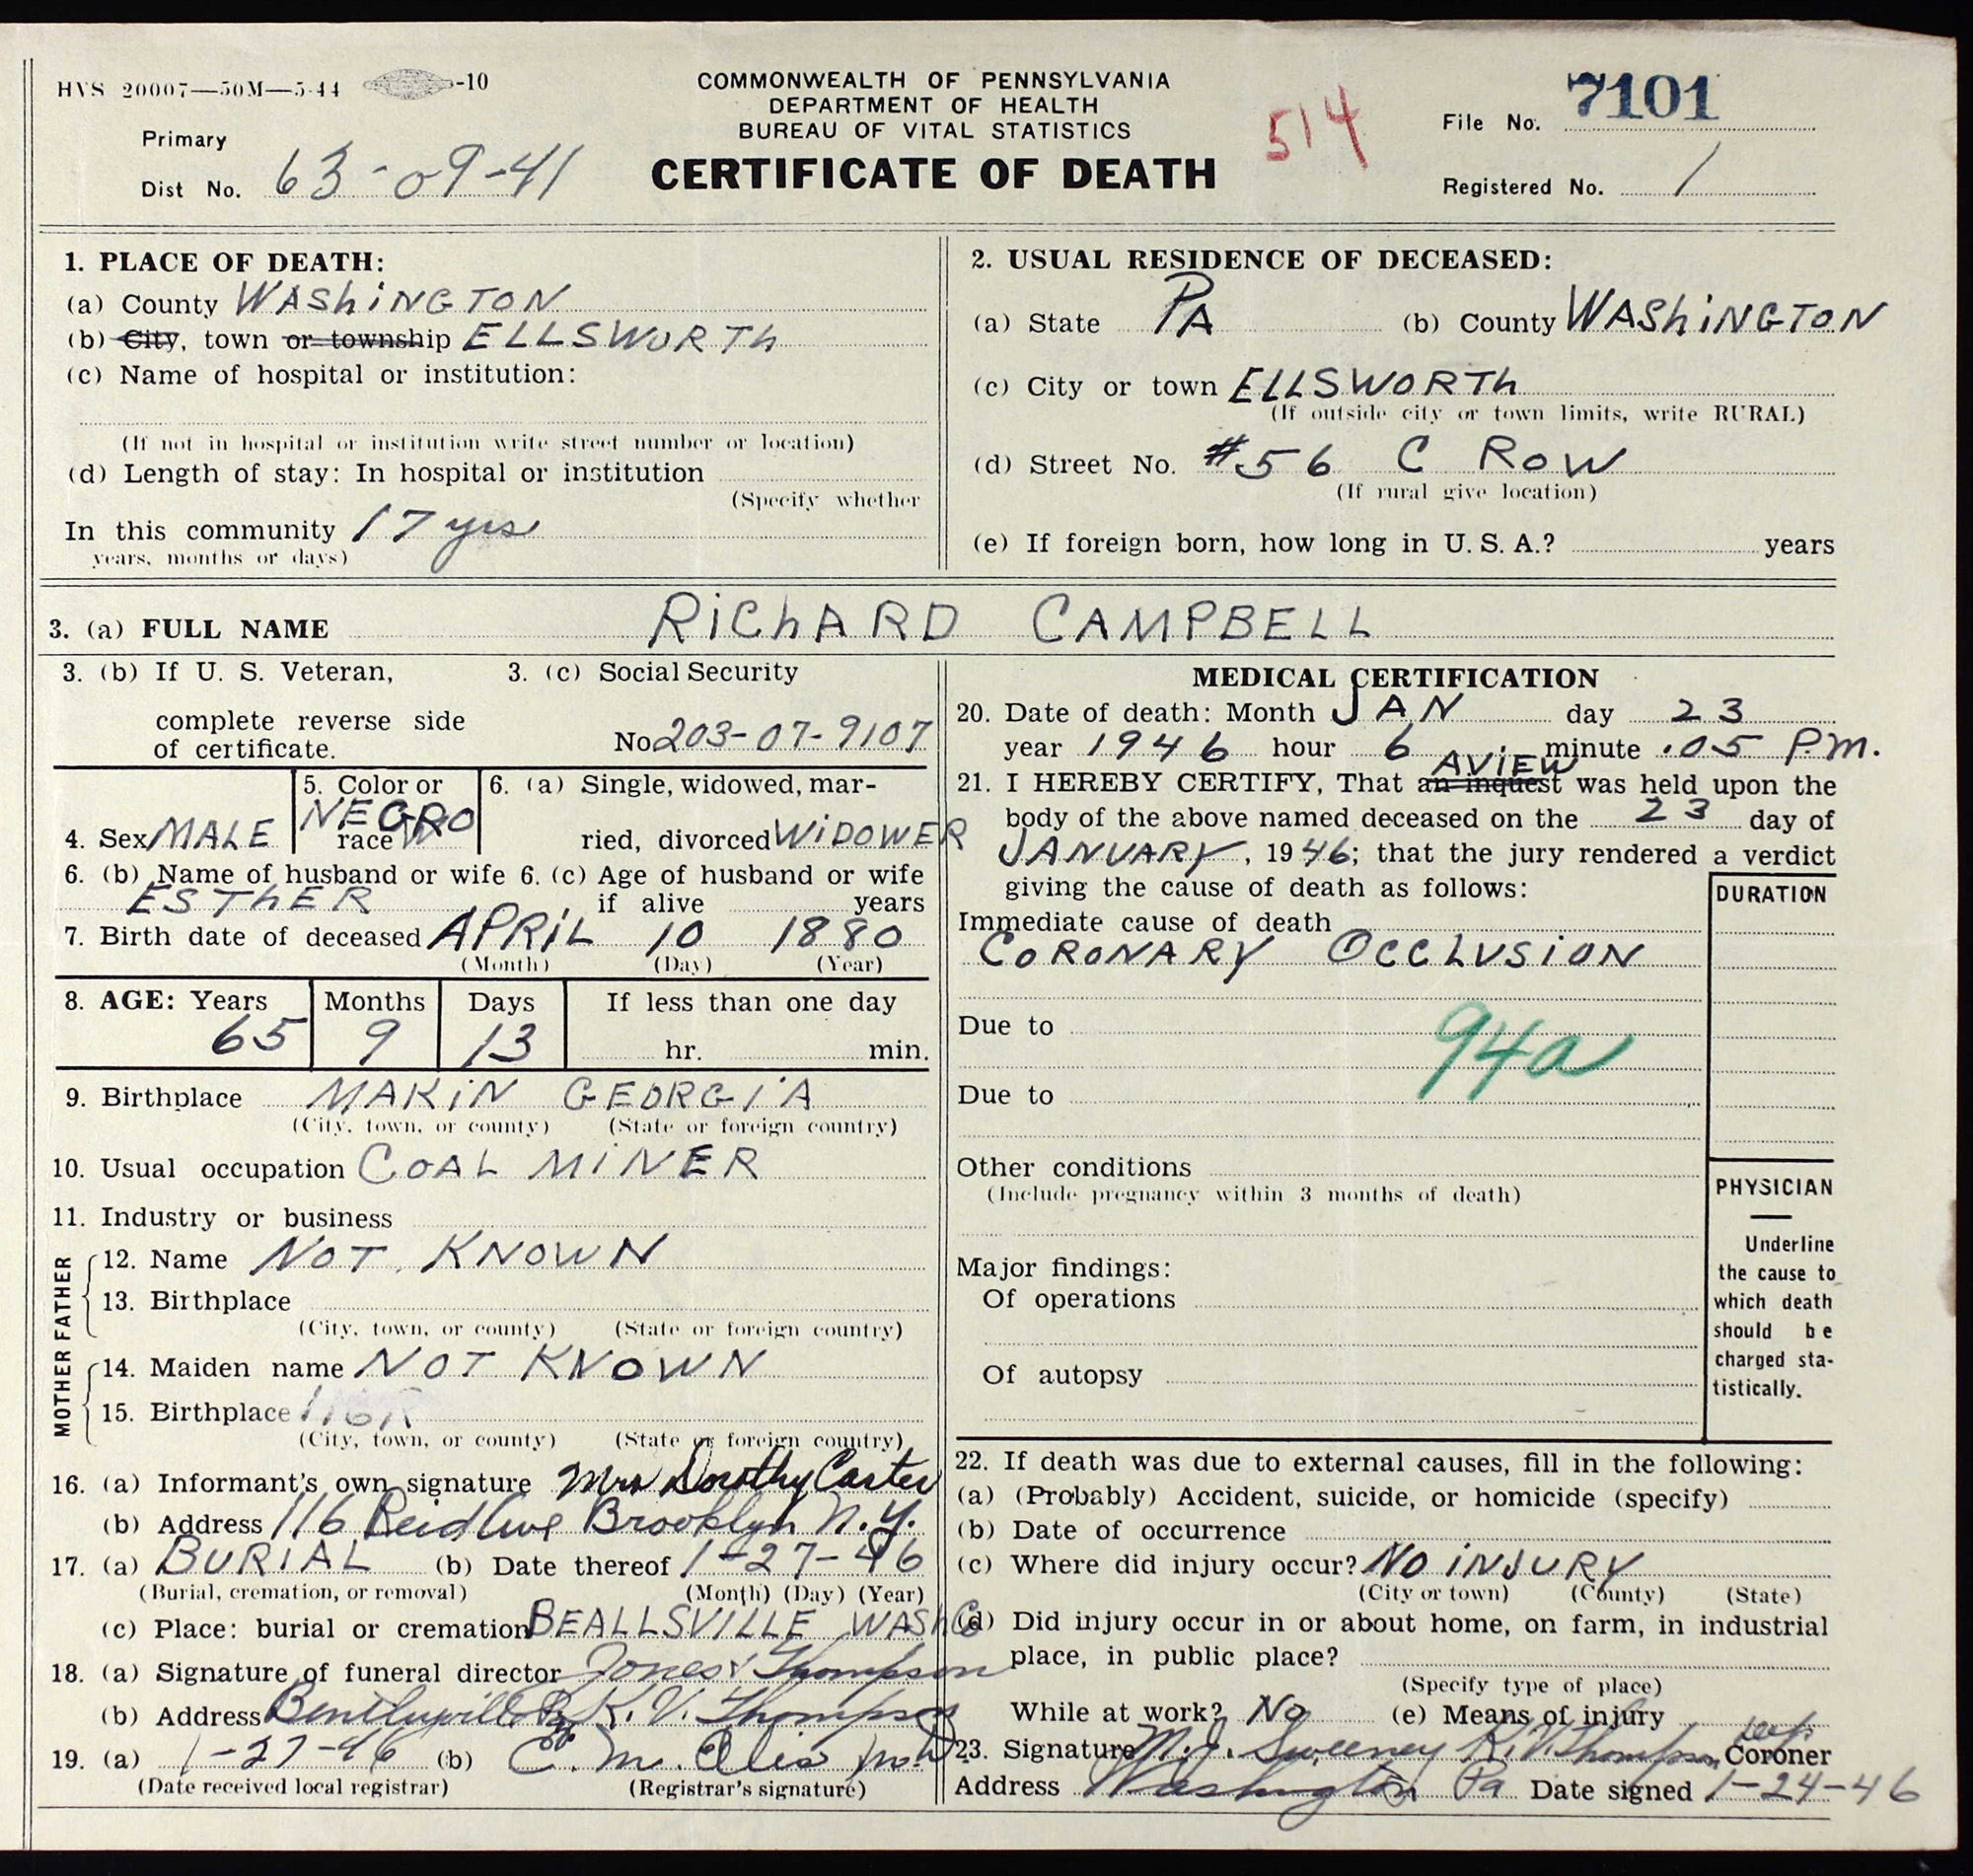 HVS 20007—50M—5-44 -10
COMMONWEALTH OF PENNSYLVANIA
DEPARTMENT OF HEALTH
BUREAU OF VITAL STATISTICS
CERTIFICATE OF DEATH
514
File No. 7101
Registered No. 1
Primary
Dist No. 63-09-41
1. PLACE OF DEATH:
(a) County WAShiNGTON
(b) City, town or township ELLSWORTh
(c) Name of hospital or institution:
(If not in hospital or institution write street number or location)
(d) Length of stay: In hospital or institution
(Specify whether
In this community 17 yrs
years, months or days)
2. USUAL RESIDENCE OF DECEASED:
(a) State PA (b) County WAShiNGTON
(c) City or town ELLSWORTh
(If outside city or town limits, write RURAL)
(d) Street No. #56 C ROW
(If rural give location)
(e) If foreign born, how long in U. S. A.? years
3. (a) FULL NAME RiChARD CAMPBELL
3. (b) If U. S. Veteran,
complete reverse side
of certificate.
3. (c) Social Security
No 203-07-9107
4. Sex MALE
5. Color or
NEGRO
race
6. (a) Single, widowed, mar-
ried, divorced WiDOWER
6. (b) Name of husband or wife 6. (c) Age of husband or wife
ESThER if alive years
7. Birth date of deceased APRiL 10 1880
(Month) (Day) (Year)
8. AGE: Years Months Days If less than one day
65 9 13 hr. min.
9. Birthplace MAKiN GEORGiA
(City, town, or county) (State or foreign country)
10. Usual occupation COAL MiNER
11. Industry or business
FATHER
12. Name NOT KNOWN
13. Birthplace
(City, town, or county) (State or foreign country)
MOTHER
14. Maiden name NOT KNOWN
15. Birthplace
(City, town, or county) (State or foreign country)
16. (a) Informant's own signature Mrs Dorothy Carter
(b) Address 116 Reid Ave Brooklyn N.Y.
17. (a) BURIAL (b) Date thereof 1-27-46
(Burial, cremation, or removal) (Month) (Day) (Year)
(c) Place: burial or cremation BEALLSVILLE WASh Co
18. (a) Signature of funeral director Jones & Thompson
(b) Address Bentleyville Pa K. V. Thompson
19. (a) 1-27-46 (b) C. M.
(Date received local registrar) (Registrar's signature)
MEDICAL CERTIFICATION
20. Date of death: Month JAN day 23
year 1946 hour 6 minute .05 P.M.
AVIEW
21. I HEREBY CERTIFY, That an inquest was held upon the
body of the above named deceased on the 23 day of
JANUARY, 1946; that the jury rendered a verdict
giving the cause of death as follows:
DURATION
Immediate cause of death
CORONARY OCCLUSiON
Due to
94a
Due to
Other conditions
(Include pregnancy within 3 months of death)
Major findings:
Of operations
Of autopsy
PHYSICIAN
Underline
the cause to
which death
should be
charged sta-
tistically.
22. If death was due to external causes, fill in the following:
(a) (Probably) Accident, suicide, or homicide (specify)
(b) Date of occurrence
(c) Where did injury occur? NO iNJURY
(City or town) (County) (State)
(d) Did injury occur in or about home, on farm, in industrial
place, in public place?
(Specify type of place)
While at work? No (e) Means of injury
23. Signature M. J. Sweeney K. V. Thompson Coroner
Address Washington Pa Date signed 1-24-46